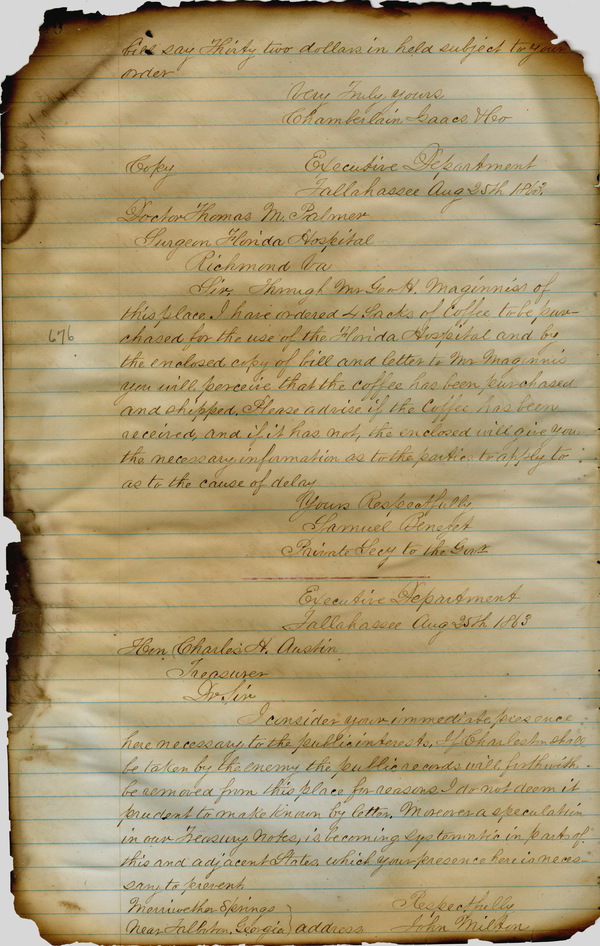 bill say Thirty two dollars in held subject to your
order
Very Truly yours
Chamberlain Isaacs & Co
Copy Executive Department
Tallahassee Aug 25th 1863.
Doctor Thomas M. Palmer
Surgeon Florida Hospital
Richmond Va
Sir, Through Mr Geo H. Maginniss of
this place. I have ordered 4 Sacks of Coffee to be pur-
676
chased for the use of the Florida Hospital and by
the enclosed copy of bill and letter to Mr Maginnis
you will perceive that the coffee has been purchased
and shipped. Please advise if the Coffee has been
received, and if it has not, the enclosed will give you
the necessary information as to the parties to apply to
as to the cause of delay
Yours Respectfully
Samuel
Private Secy to the Govr
Executive Department
Tallahassee Aug 25th 1863
Hon Charles H. Austin
Treasurer
Dr Sir
I consider your immediate presence
here necessary to the public interests. If Charleston shall
be taken by the enemy the public records will forthwith
be removed from this place for reasons I do not deem it
prudent to make known by letter. Moreover a speculation
in our Treasury Notes, is becoming systematic in parts of
this and adjacent States, which your presence here is neces-
sary to prevent
Merriwether Springs Respectfully
Near Georgia } address John Milton